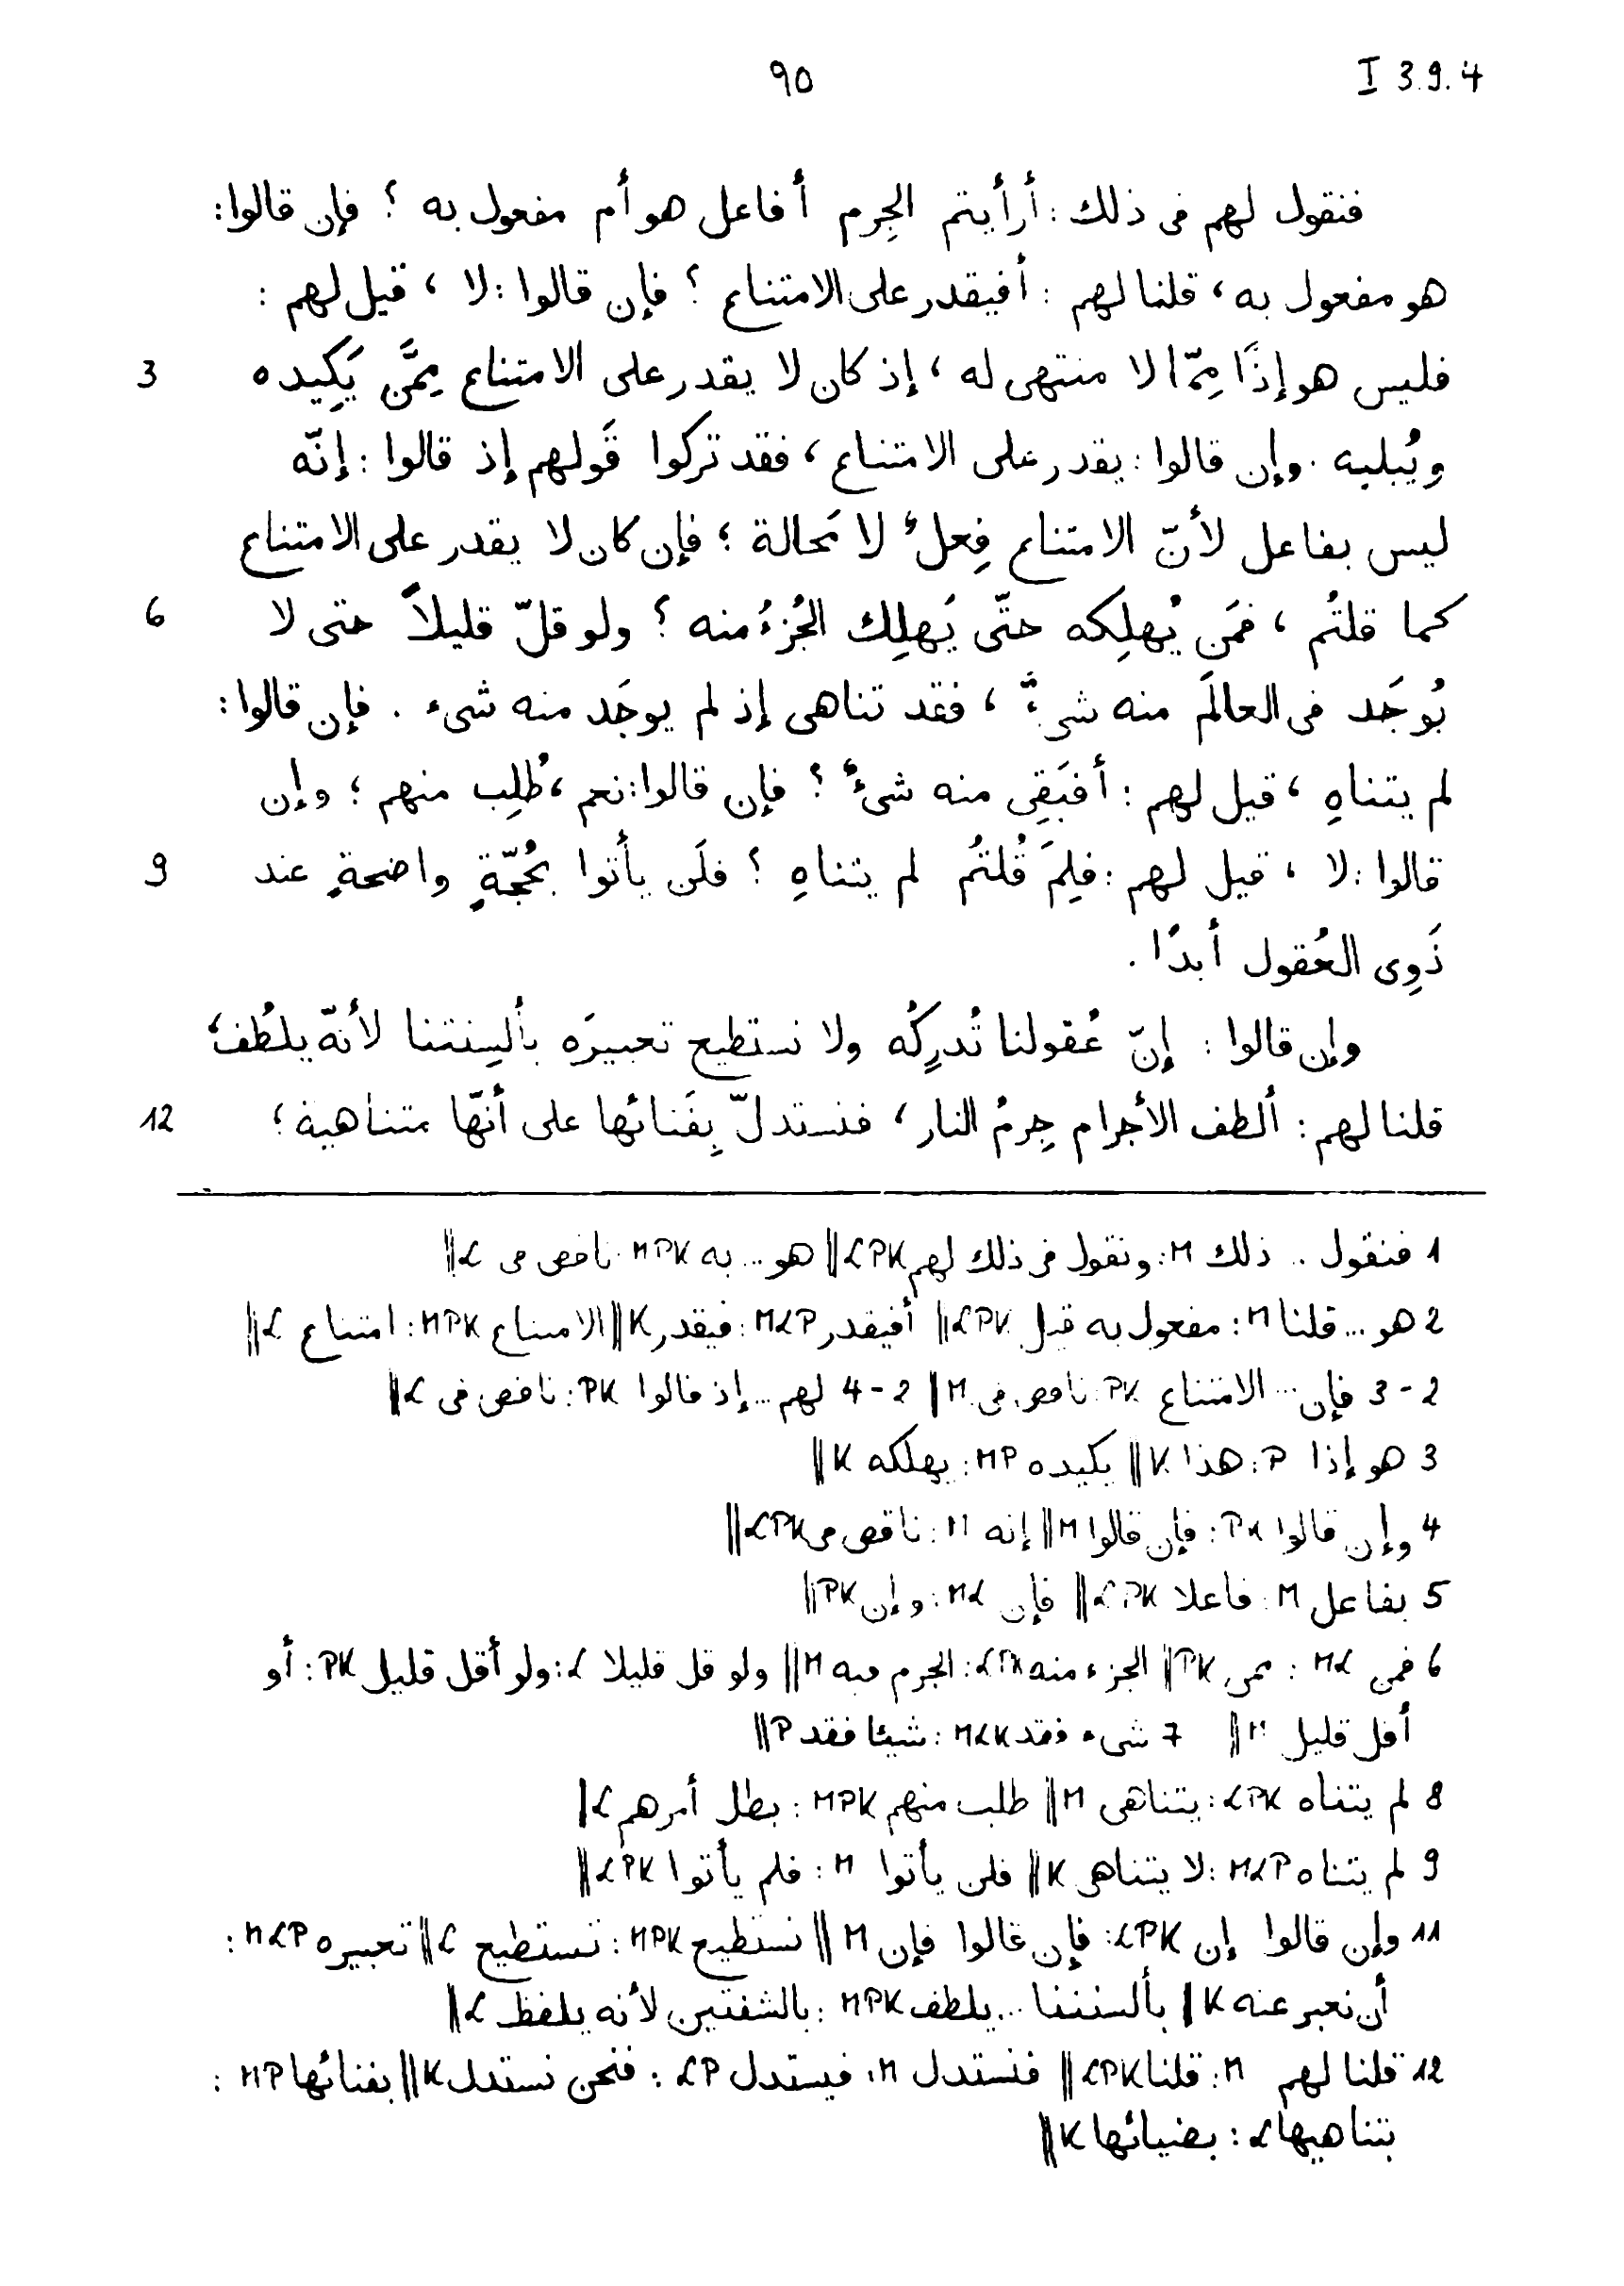 ٩٠
I 3.9.4
فنقول لهم فى ذلك : أرأيتم الجِرم أفاعل هو أم مفعول به ؟ فإن قالوا :
هو مفعول به ، قلنا لهم : أفيقدر على الامتناع ؟ فإن قالوا : لا ، قيل لهم :
فليس هو إذًا مِمّا لا منتهى له ، إذ كان لا يقدر على الامتناع مِمَّن يَكِيده 3
ويُبليه . وإن قالوا : يقدر على الامتناع ، فقد تركوا قَولهم إذ قالوا : إنّه
ليس بفاعل لأنّ الامتناع فِعلٌ لا مَحالة ؛ فإن كان لا يقدر على الامتناع
كما قلتُم ، فمَن يُهلِكه حتّى يَهلِك الجُزءُ منه ؟ ولو قلّ قليلاً حتى لا 6
يُوجَد فى العالَم منه شىءٌ ، فقد تناهى إذ لم يوجَد منه شىء . فإن قالوا :
لم يتناهِ ، قيل لهم : أفبَقِى منه شىءٌ ؟ فإن قالوا : نعم ، طُلِب منهم ؛ وإن
قالوا : لا ، قيل لهم : فلِمَ قُلتُم لم يتناهِ ؟ فلَن يأتوا بحُجّةٍ واضحةٍ عند 9
ذَوِى العُقول أبدًا .
وإن قالوا : إنّ عُقولنا تُدرِكُه ولا نستطيع تعبيرَه بألسِنتنا لأنّه يلطُف ؛
قلنا لهم : ألطف الأجرام جِرمُ النار ، فنستدلّ بِفَنائها على أنّها متناهية ؛ 12
1 فنقول .. ذلك M : ونقول فى ذلك لهم LPK || هو ... به MPK : ناقص فى L ||
2 هو ... قلنا M : مفعول به قيل LPK || أفيقدر MLP : فيقدر K || الامتناع MPK : امتناع L ||
2 - 3 فإن ... الامتناع PK : ناقص فى M || 2 - 4 لهم ... إذ قالوا PK : ناقص فى L ||
3 هو إذا P : هذا K || يكيده MP : يهلكه K ||
4 وإن قالوا PK : فإن قالوا M || إنه M : ناقص فى LPK ||
5 بفاعل M : فاعلا LPK || فإن ML : وإن PK ||
6 فمن ML : ممن PK || الجزء منه LPK : الجرم منه M || ولو قل قليلا L : ولو أقل قليل PK : أو
أقل قليل M || 7 شىء فقد MLK : شيئا فقد P ||
8 لم يتناه LPK : يتناهى M || طلب منهم MPK : بطل أمرهم L ||
9 لم يتناه MLP : لا يتناهى K || فلن يأتوا M : فلم يأتوا LPK ||
11 وإن قالوا إن LPK : فإن قالوا فإن M || نستطيع MPK : تستطيع L || تعبيره MLP :
أن نعبر عنه K || بألسنتنا ... يلطف MPK : بالشفتين لأنه يلفظ L ||
12 قلنا لهم M : قلنا LPK || فنستدل M : فيستدل LP : فنحن نستدل K || بفنائها MP :
بتناهيها L : بضيائها K ||